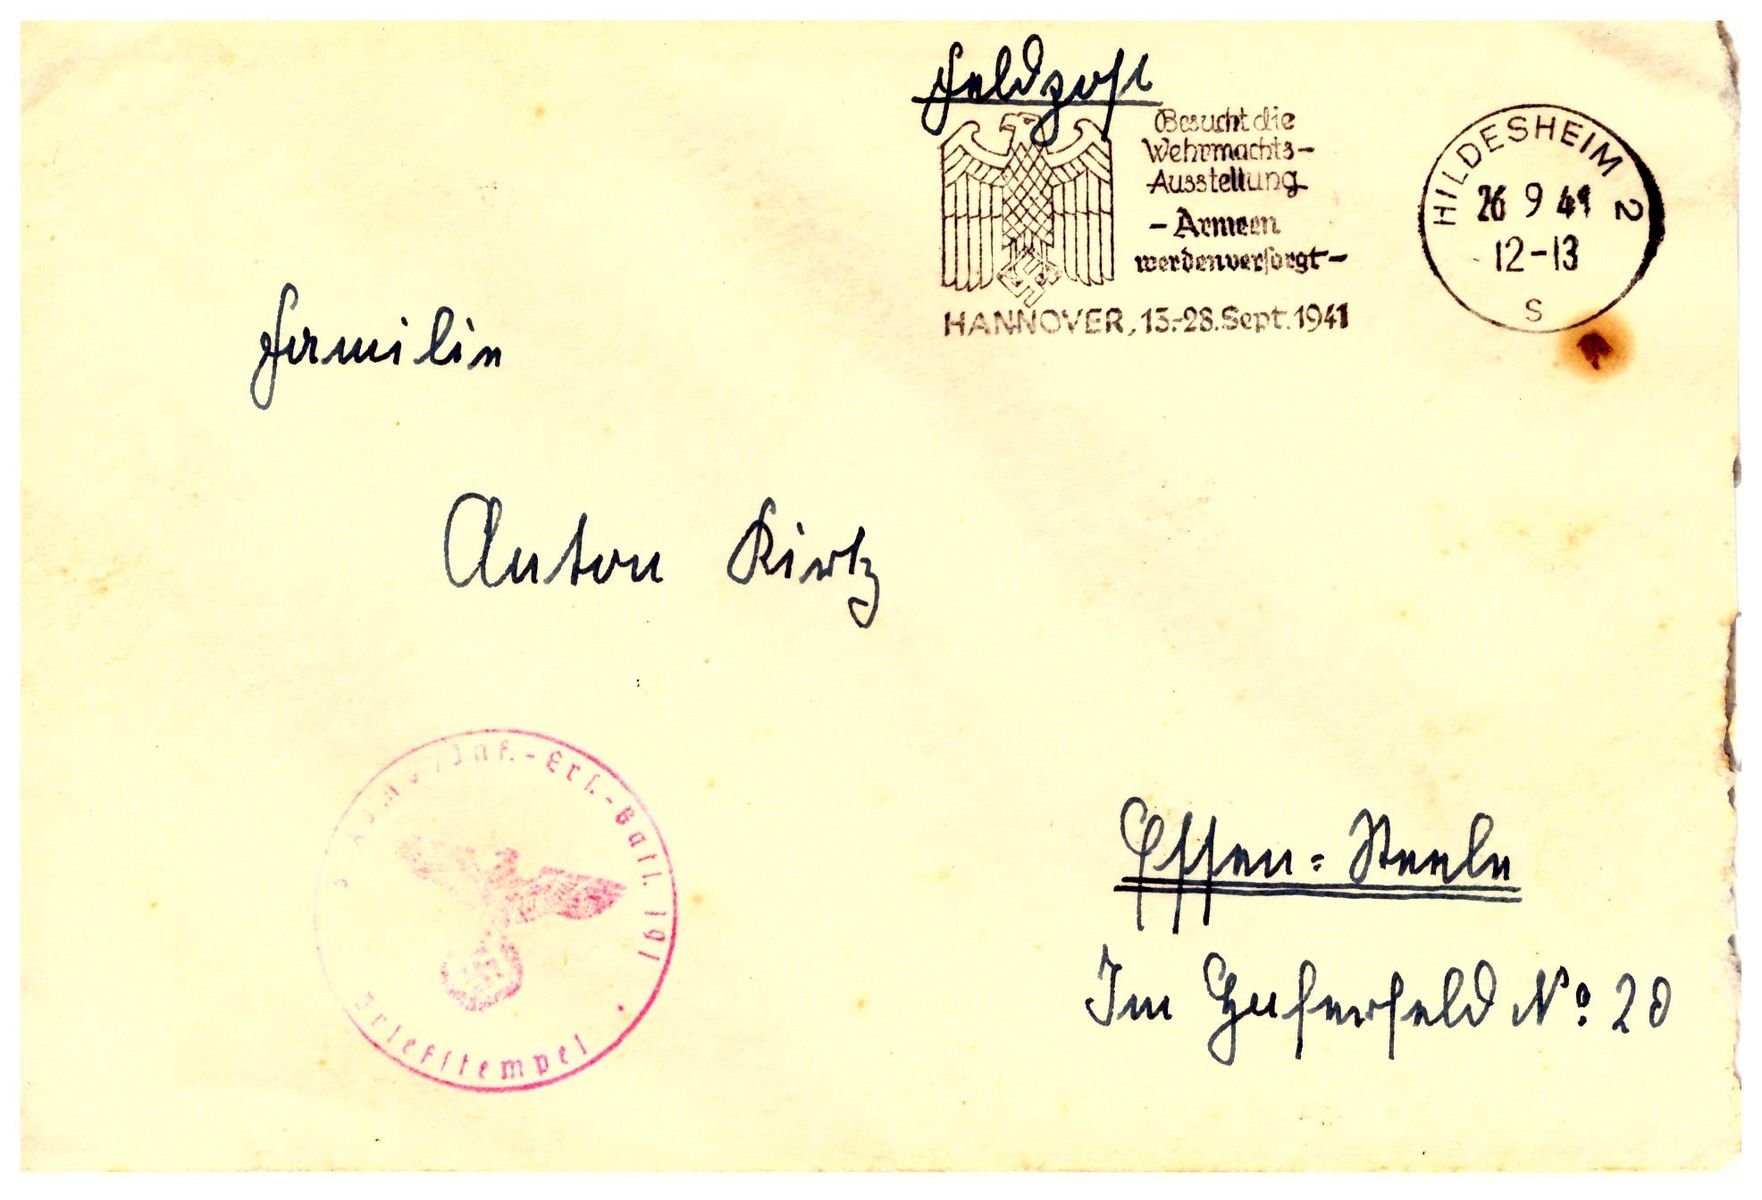 Feldpost
Besucht die
Wehrmachts-
Ausstellung
- Armeen
werden versorgt -
HANNOVER, 13.-28. Sept. 1941
HILDESHEIM 2
26 9 41
12-13
S
Familie
Anton Kirtz
Inf.-Ers.-Batl. 191
Briefstempel
Essen = Steele
Im Huferfeld No. 20